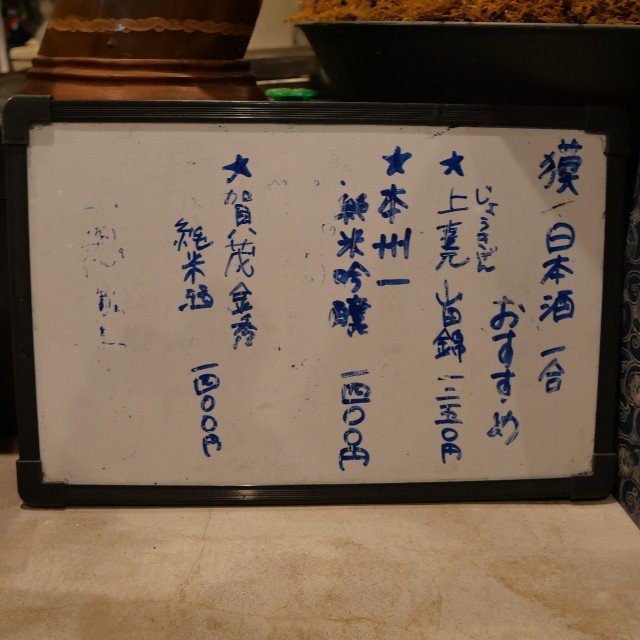 獏 日本酒 一合
おすすめ
じょうきげん
★上喜元 一三五〇円
★本州一
純米吟醸 一四〇〇円
★賀茂金秀
純米酒 一四〇〇円